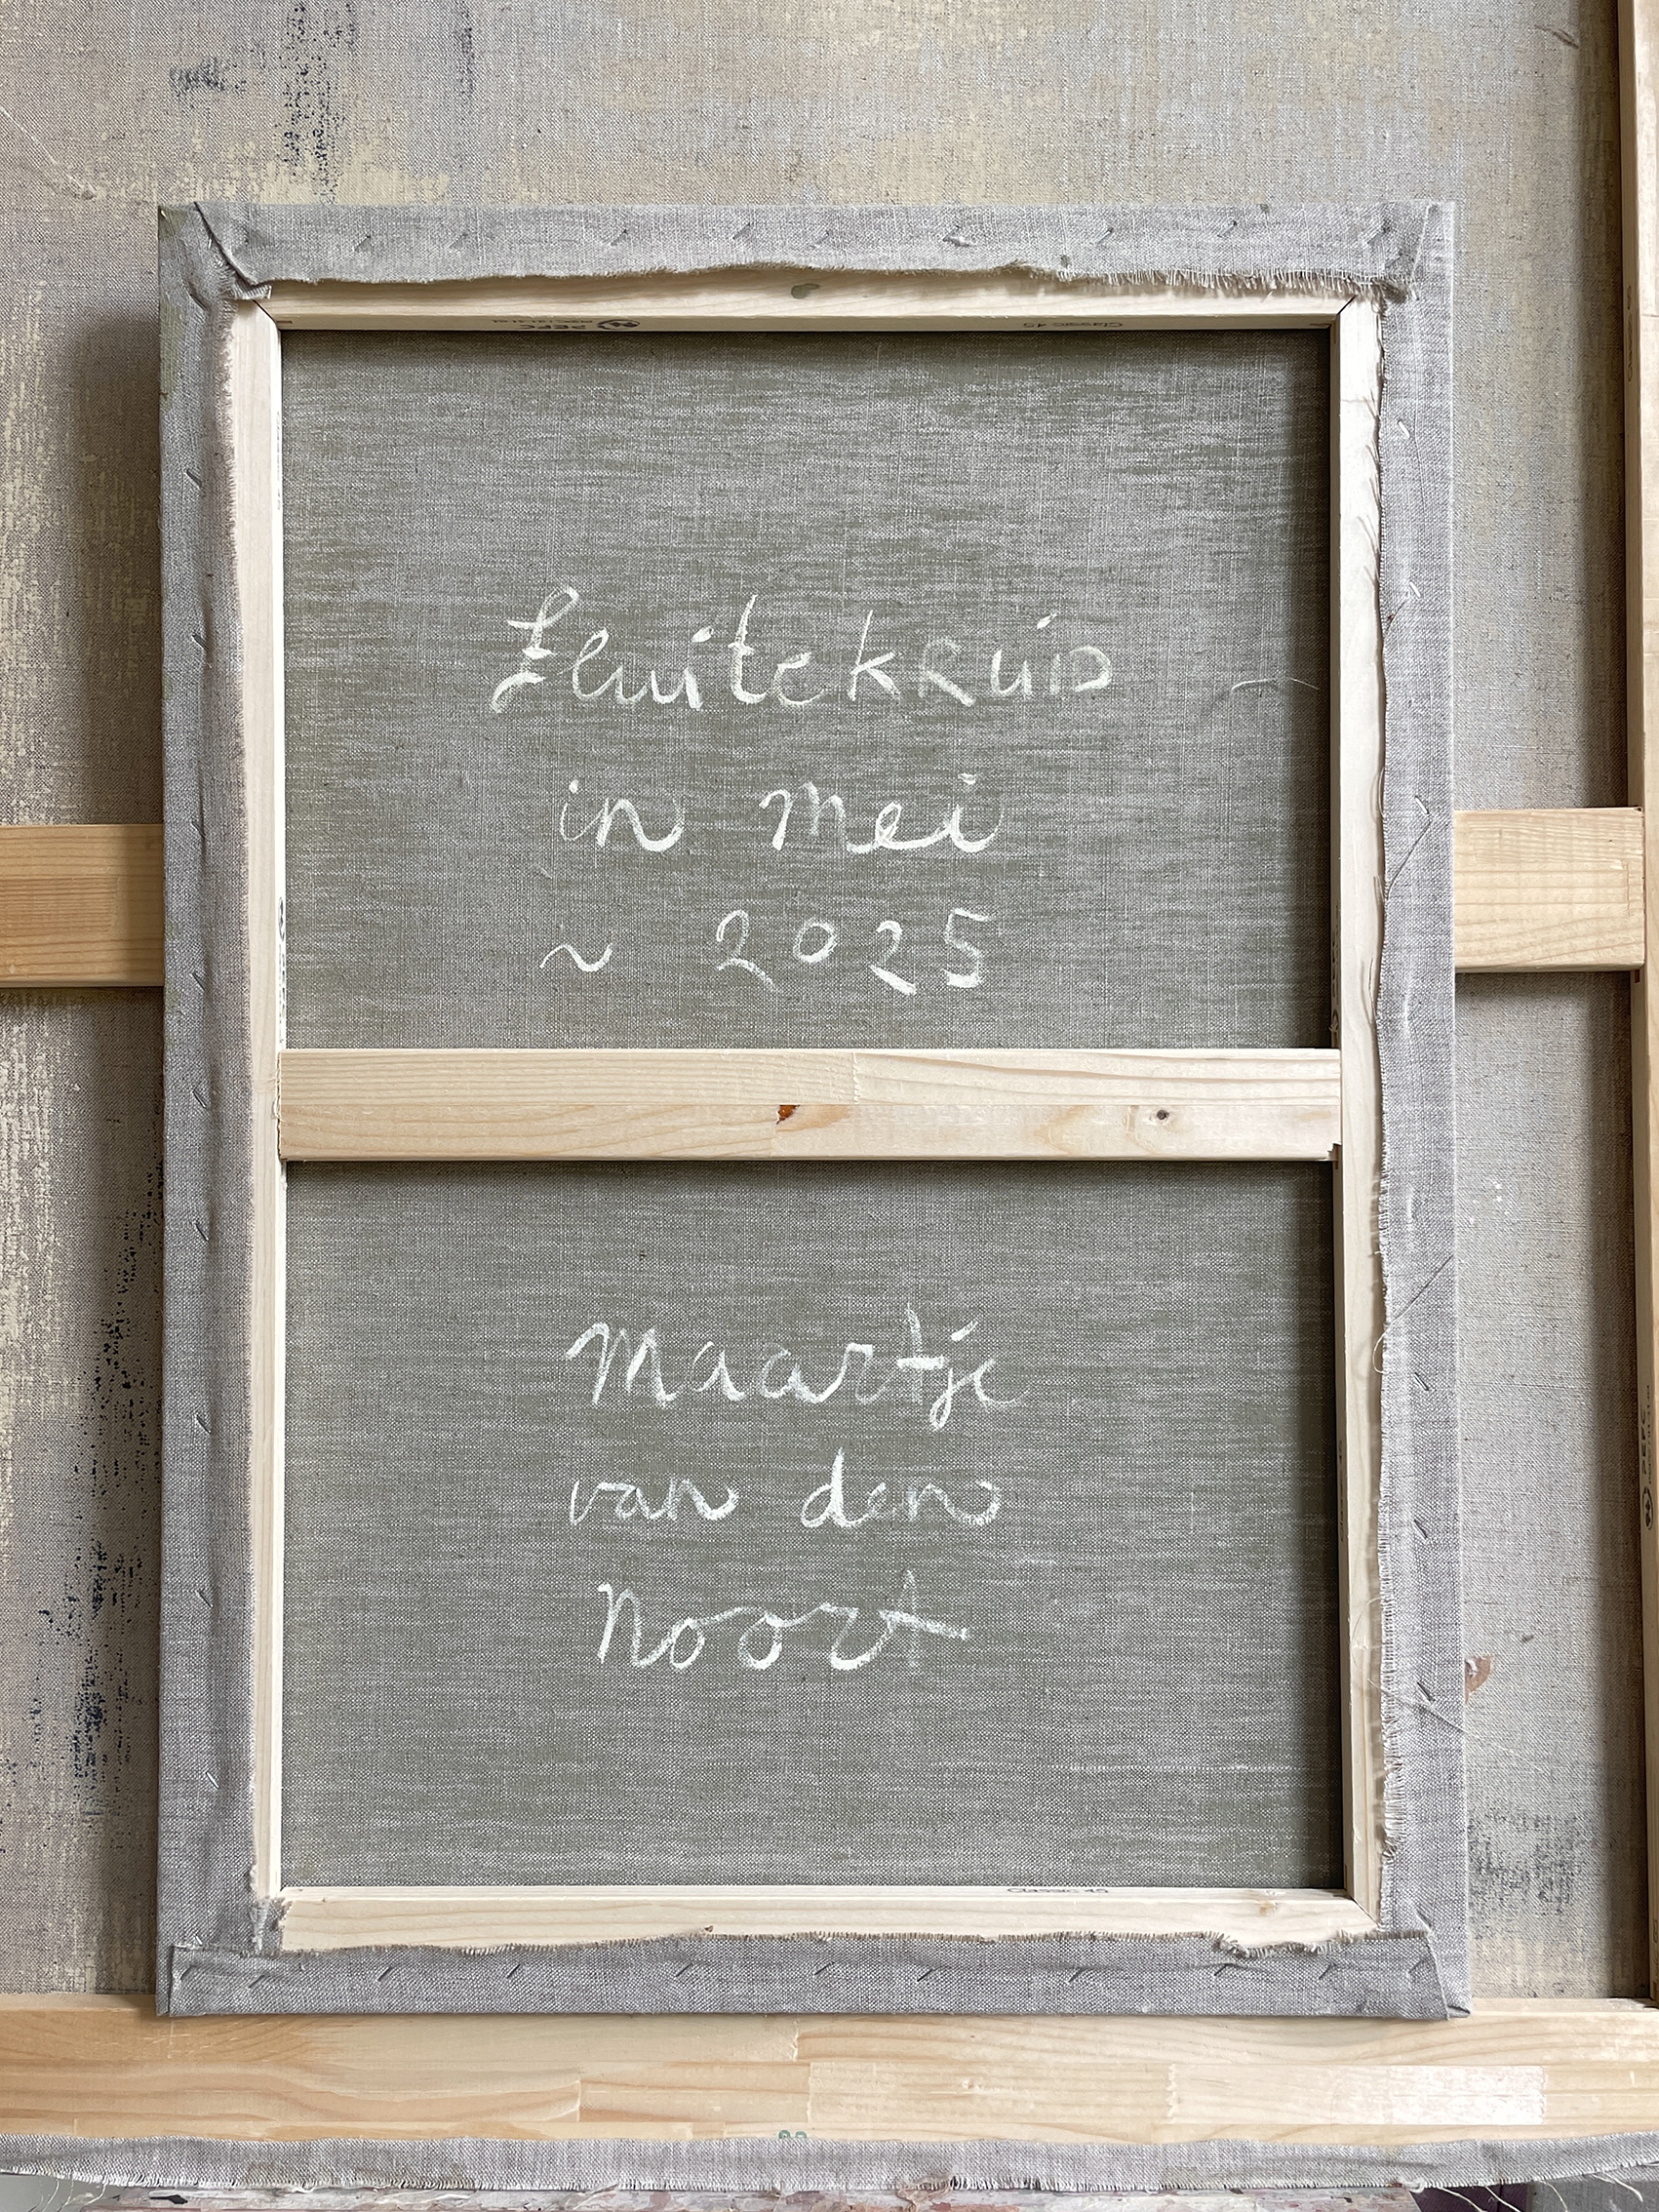 PEFC
Classic 45
Fluitekruid
in mei
~ 2025
Maartje
van den
Noort
Classic 45
PEFC